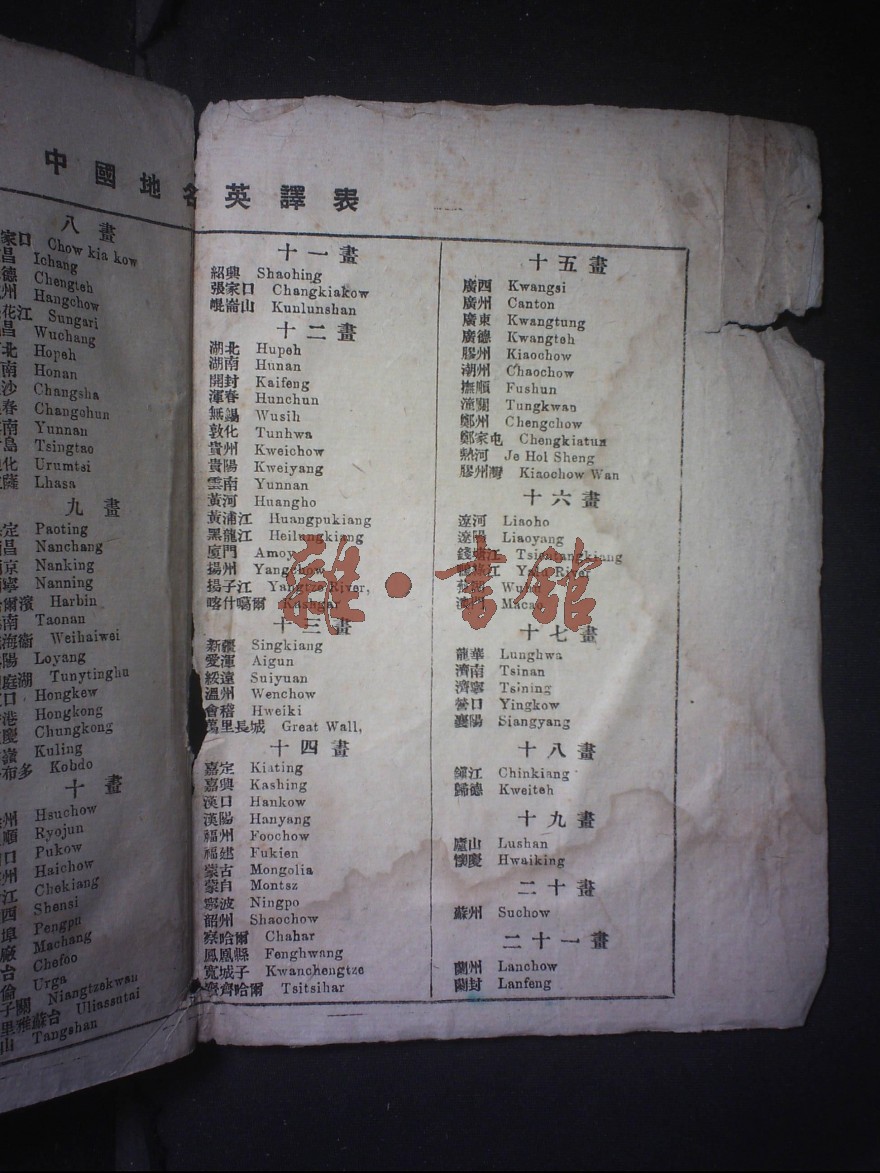 中國地名英譯表
八畫
家口 Chow kia kow
昌 Ichang
德 Chengteh
州 Hangchow
花江 Sungari
昌 Wuchang
北 Hopeh
南 Honan
沙 Changsha
春 Changchun
南 Yunnan
島 Tsingtao
化 Urumtsi
薩 Lhasa
九畫
定 Paoting
昌 Nanchang
京 Nanking
寧 Nanning
哈爾濱 Harbin
南 Taonan
海衞 Weihaiwei
陽 Loyang
庭湖 Tunytinghu
口 Hongkew
港 Hongkong
慶 Chungkong
嶺 Kuling
布多 Kobdo
十畫
州 Hsuchow
順 Ryojun
口 Pukow
州 Haichow
江 Chekiang
西 Shensi
埠 Pengpu
廠 Machang
台 Chefoo
倫 Urga
子關 Niangtzekwan
里雅蘇台 Uliassutai
山 Tangshan
十一畫
紹興 Shaohing
張家口 Changkiakow
崐崙山 Kunlunshan
十二畫
湖北 Hupeh
湖南 Hunan
開封 Kaifeng
渾春 Hunchun
無錫 Wusih
敦化 Tunhwa
貴州 Kweichow
貴陽 Kweiyang
雲南 Yunnan
黃河 Huangho
黃浦江 Huangpukiang
黑龍江 Heilungkiang
廈門 Amoy
揚州 Yangchow
揚子江 Yangtze River,
喀什噶爾 Kashgar
十三畫
新疆 Singkiang
愛渾 Aigun
綏遠 Suiyuan
溫州 Wenchow
會稽 Hweiki
萬里長城 Great Wall,
十四畫
嘉定 Kiating
嘉興 Kashing
漢口 Hankow
漢陽 Hanyang
福州 Foochow
福建 Fukien
蒙古 Mongolia
蒙自 Montsz
寧波 Ningpo
韶州 Shaochow
察哈爾 Chahar
鳳凰縣 Fenghwang
寬城子 Kwanchengtze
齊齊哈爾 Tsitsihar
十五畫
廣西 Kwangsi
廣州 Canton
廣東 Kwangtung
廣德 Kwangteh
膠州 Kiaochow
潮州 Chaochow
撫順 Fushun
潼關 Tungkwan
鄭州 Chengchow
鄭家屯 Chengkiatun
熱河 Je Hol Sheng
膠州灣 Kiaochow Wan
十六畫
遼河 Liaoho
遼陽 Liaoyang
錢塘江 Tsientangkiang
鴨綠江 Yalu River
蕪湖 Wuhu
澳門 Macao
十七畫
龍華 Lunghwa
濟南 Tsinan
濟寧 Tsining
營口 Yingkow
襄陽 Siangyang
十八畫
鎭江 Chinkiang
歸德 Kweiteh
十九畫
廬山 Lushan
懷慶 Hwaiking
二十畫
蘇州 Suchow
二十一畫
蘭州 Lanchow
蘭封 Lanfeng
雜·書館